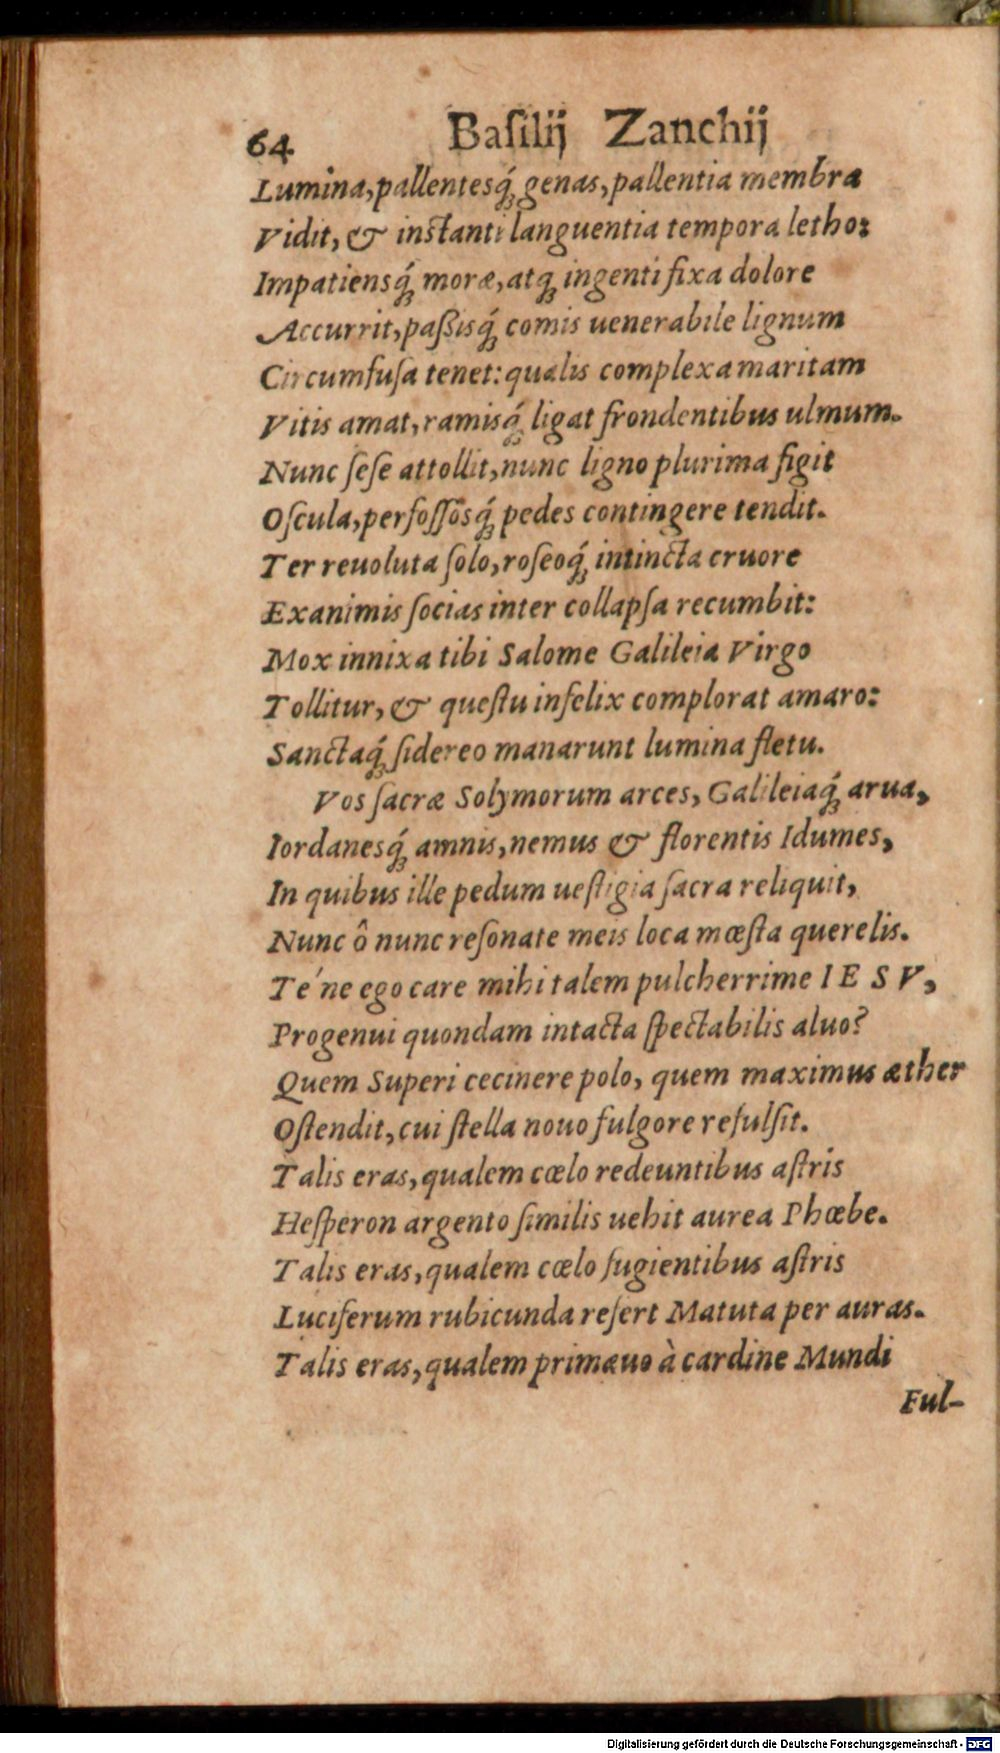 64 Baſilij Zanchij
Lumina, pallentesq́ꝫ genas, pallentia membra
Vidit, & inſtanti languentia tempora letho:
Impatiensq́ꝫ moræ, atqꝫ ingenti fixa dolore
Accurrit, paßisq́ꝫ comis uenerabile lignum
Circumfuſa tenet: qualis complexa maritam
Vitis amat, ramisq́ꝫ ligat frondentibus ulmum.
Nunc ſeſe attollit, nunc ligno plurima figit
Oſcula, perfoſſosq́ꝫ pedes contingere tendit.
Ter reuoluta ſolo, roſeoq́ꝫ intincta cruore
Exanimis ſocias inter collapſa recumbit:
Mox innixa tibi Salome Galileia Virgo
Tollitur, & queſtu infelix complorat amaro:
Sanctaq́ꝫ ſidereo manarunt lumina fletu.
Vos ſacræ Solymorum arces, Galileiaq́ꝫ arua,
Iordanesq́ꝫ amnis, nemus & florentis Idumes,
In quibus ille pedum ueſtigia ſacra reliquit,
Nunc ô nunc reſonate meis loca mœſta querelis.
Té ne ego care mihi talem pulcherrime IESV,
Progenui quondam intacta ſpectabilis aluo?
Quem Superi cecinere polo, quem maximus æther
Oſtendit, cui ſtella nouo fulgore refulſit.
Talis eras, qualem cœlo redeuntibus aſtris
Heſperon argento ſimilis uehit aurea Phœbe.
Talis eras, qualem cœlo fugientibus aſtris
Luciferum rubicunda refert Matuta per auras.
Talis eras, qualem primæuo à cardine Mundi
Ful-
Digitalisierung gefördert durch die Deutsche Forschungsgemeinschaft - DFG